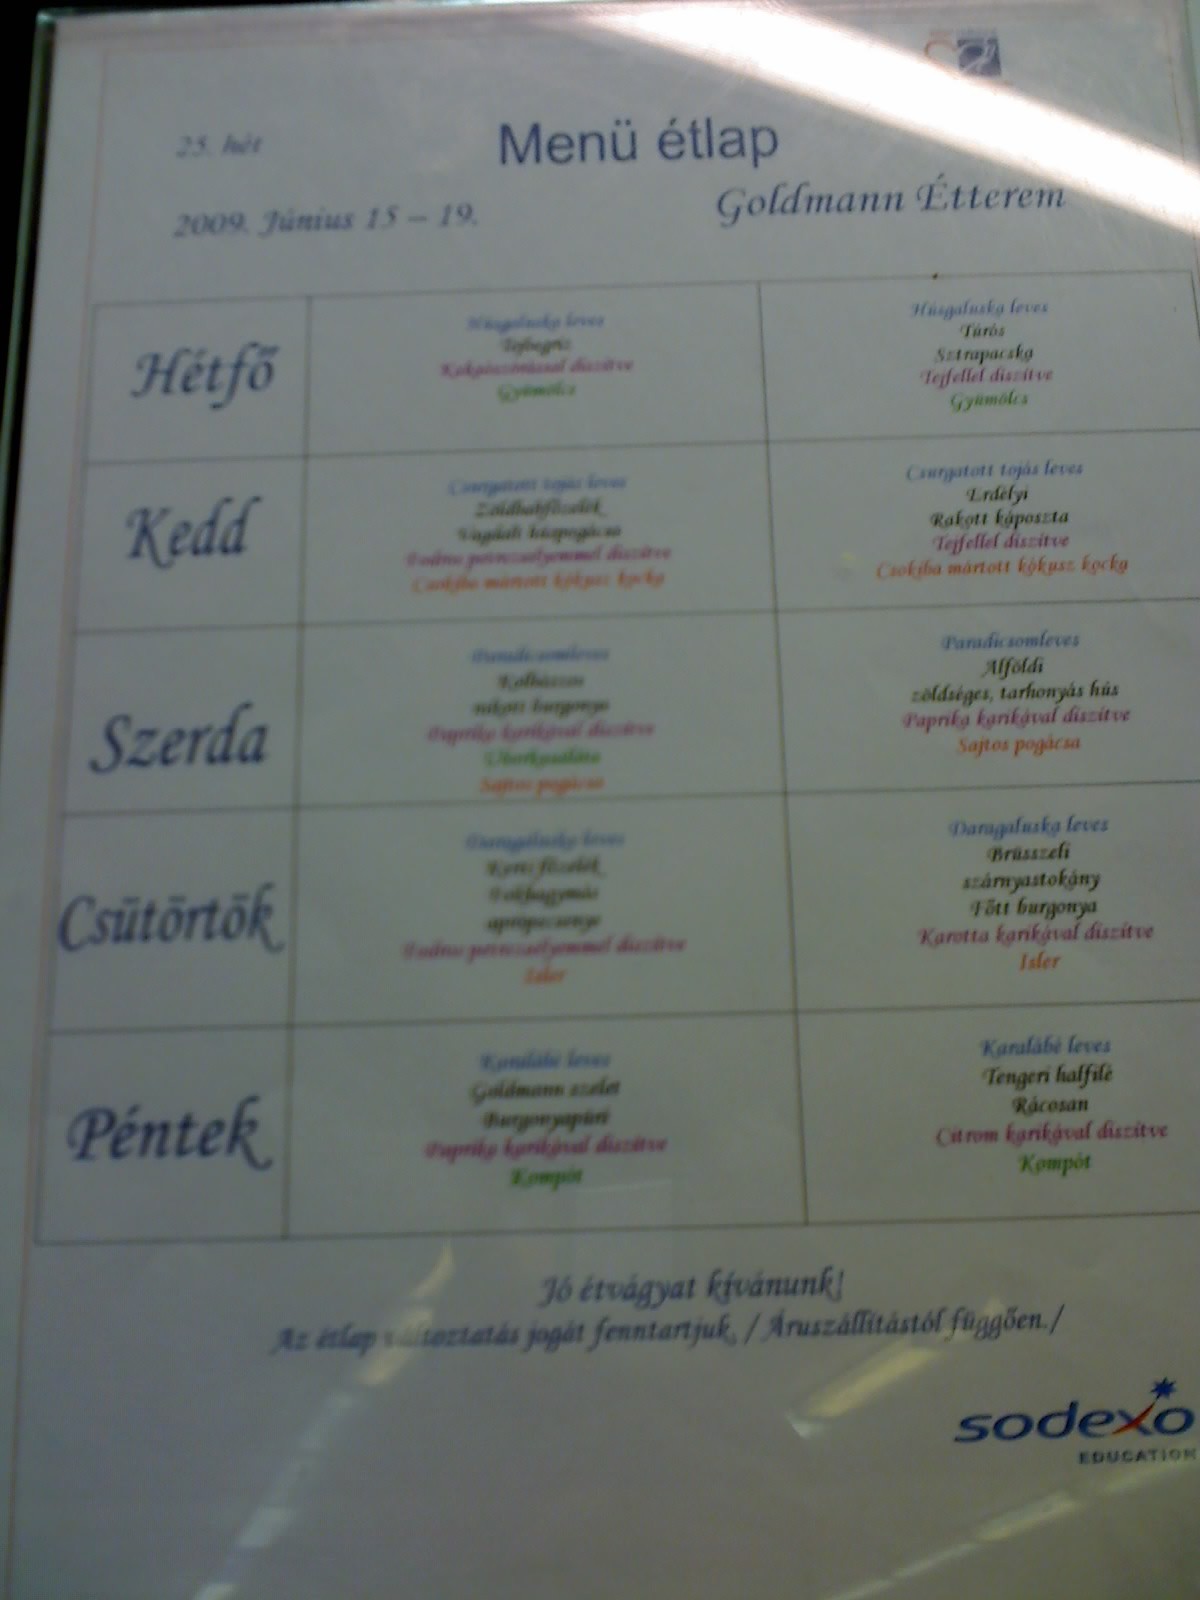 25. hét
Menü étlap
2009. Június 15 – 19.
Goldmann Étterem
Hétfő
Húsgaluska leves
Tejbegríz
Kakaószórással díszítve
Gyümölcs
Húsgaluska leves
Túrós
Sztrapacska
Tejfellel díszítve
Gyümölcs
Kedd
Csurgatott tojás leves
Zöldbabfőzelék
Vagdalt húspogácsa
Fodros petrezselyemmel díszítve
Csokiba mártott kókusz kocka
Csurgatott tojás leves
Erdélyi
Rakott káposzta
Tejfellel díszítve
Csokiba mártott kókusz kocka
Szerda
Paradicsomleves
Kolbászos
rakott burgonya
Paprika karikával díszítve
Uborkasaláta
Sajtos pogácsa
Paradicsomleves
Alföldi
zöldséges, tarhonyás hús
Paprika karikával díszítve
Sajtos pogácsa
Csütörtök
Daragaluska leves
főzelék
Fokhagymás
aprópecsenye
Fodros petrezselyemmel díszítve
Isler
Daragaluska leves
Brüsszeli
szárnyastokány
Főtt burgonya
Karotta karikával díszítve
Isler
Péntek
Karalábé leves
Goldmann szelet
Burgonyapüré
Paprika karikával díszítve
Kompót
Karalábé leves
Tengeri halfilé
Rácosan
Citrom karikával díszítve
Kompót
Jó étvágyat kívánunk!
Az étlap változtatás jogát fenntartjuk. / Áruszállítástól függően./
sodexo
EDUCATION